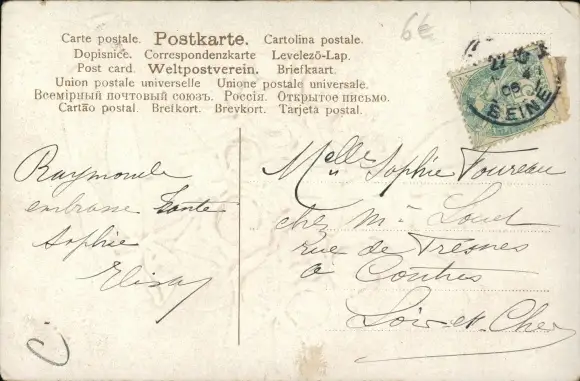 6€
Carte postale. Postkarte. Cartolina postale.
Dopisnice. Correspondenzkarte Levelezö-Lap.
Post card. Weltpostverein. Briefkaart.
Union postale universelle Unione postale universale.
Всемірный почтовый союзъ. Россія. Открытое письмо.
Cartão postal. Brefkort. Brevkort. Tarjeta postal.
22
06
BEINE
Raymonde
embrasse tante
Sophie
Elisa
Melle Sophie Foureau
chez Mr Louet
rue de Fresnes
à Contres
Loir-et-Cher